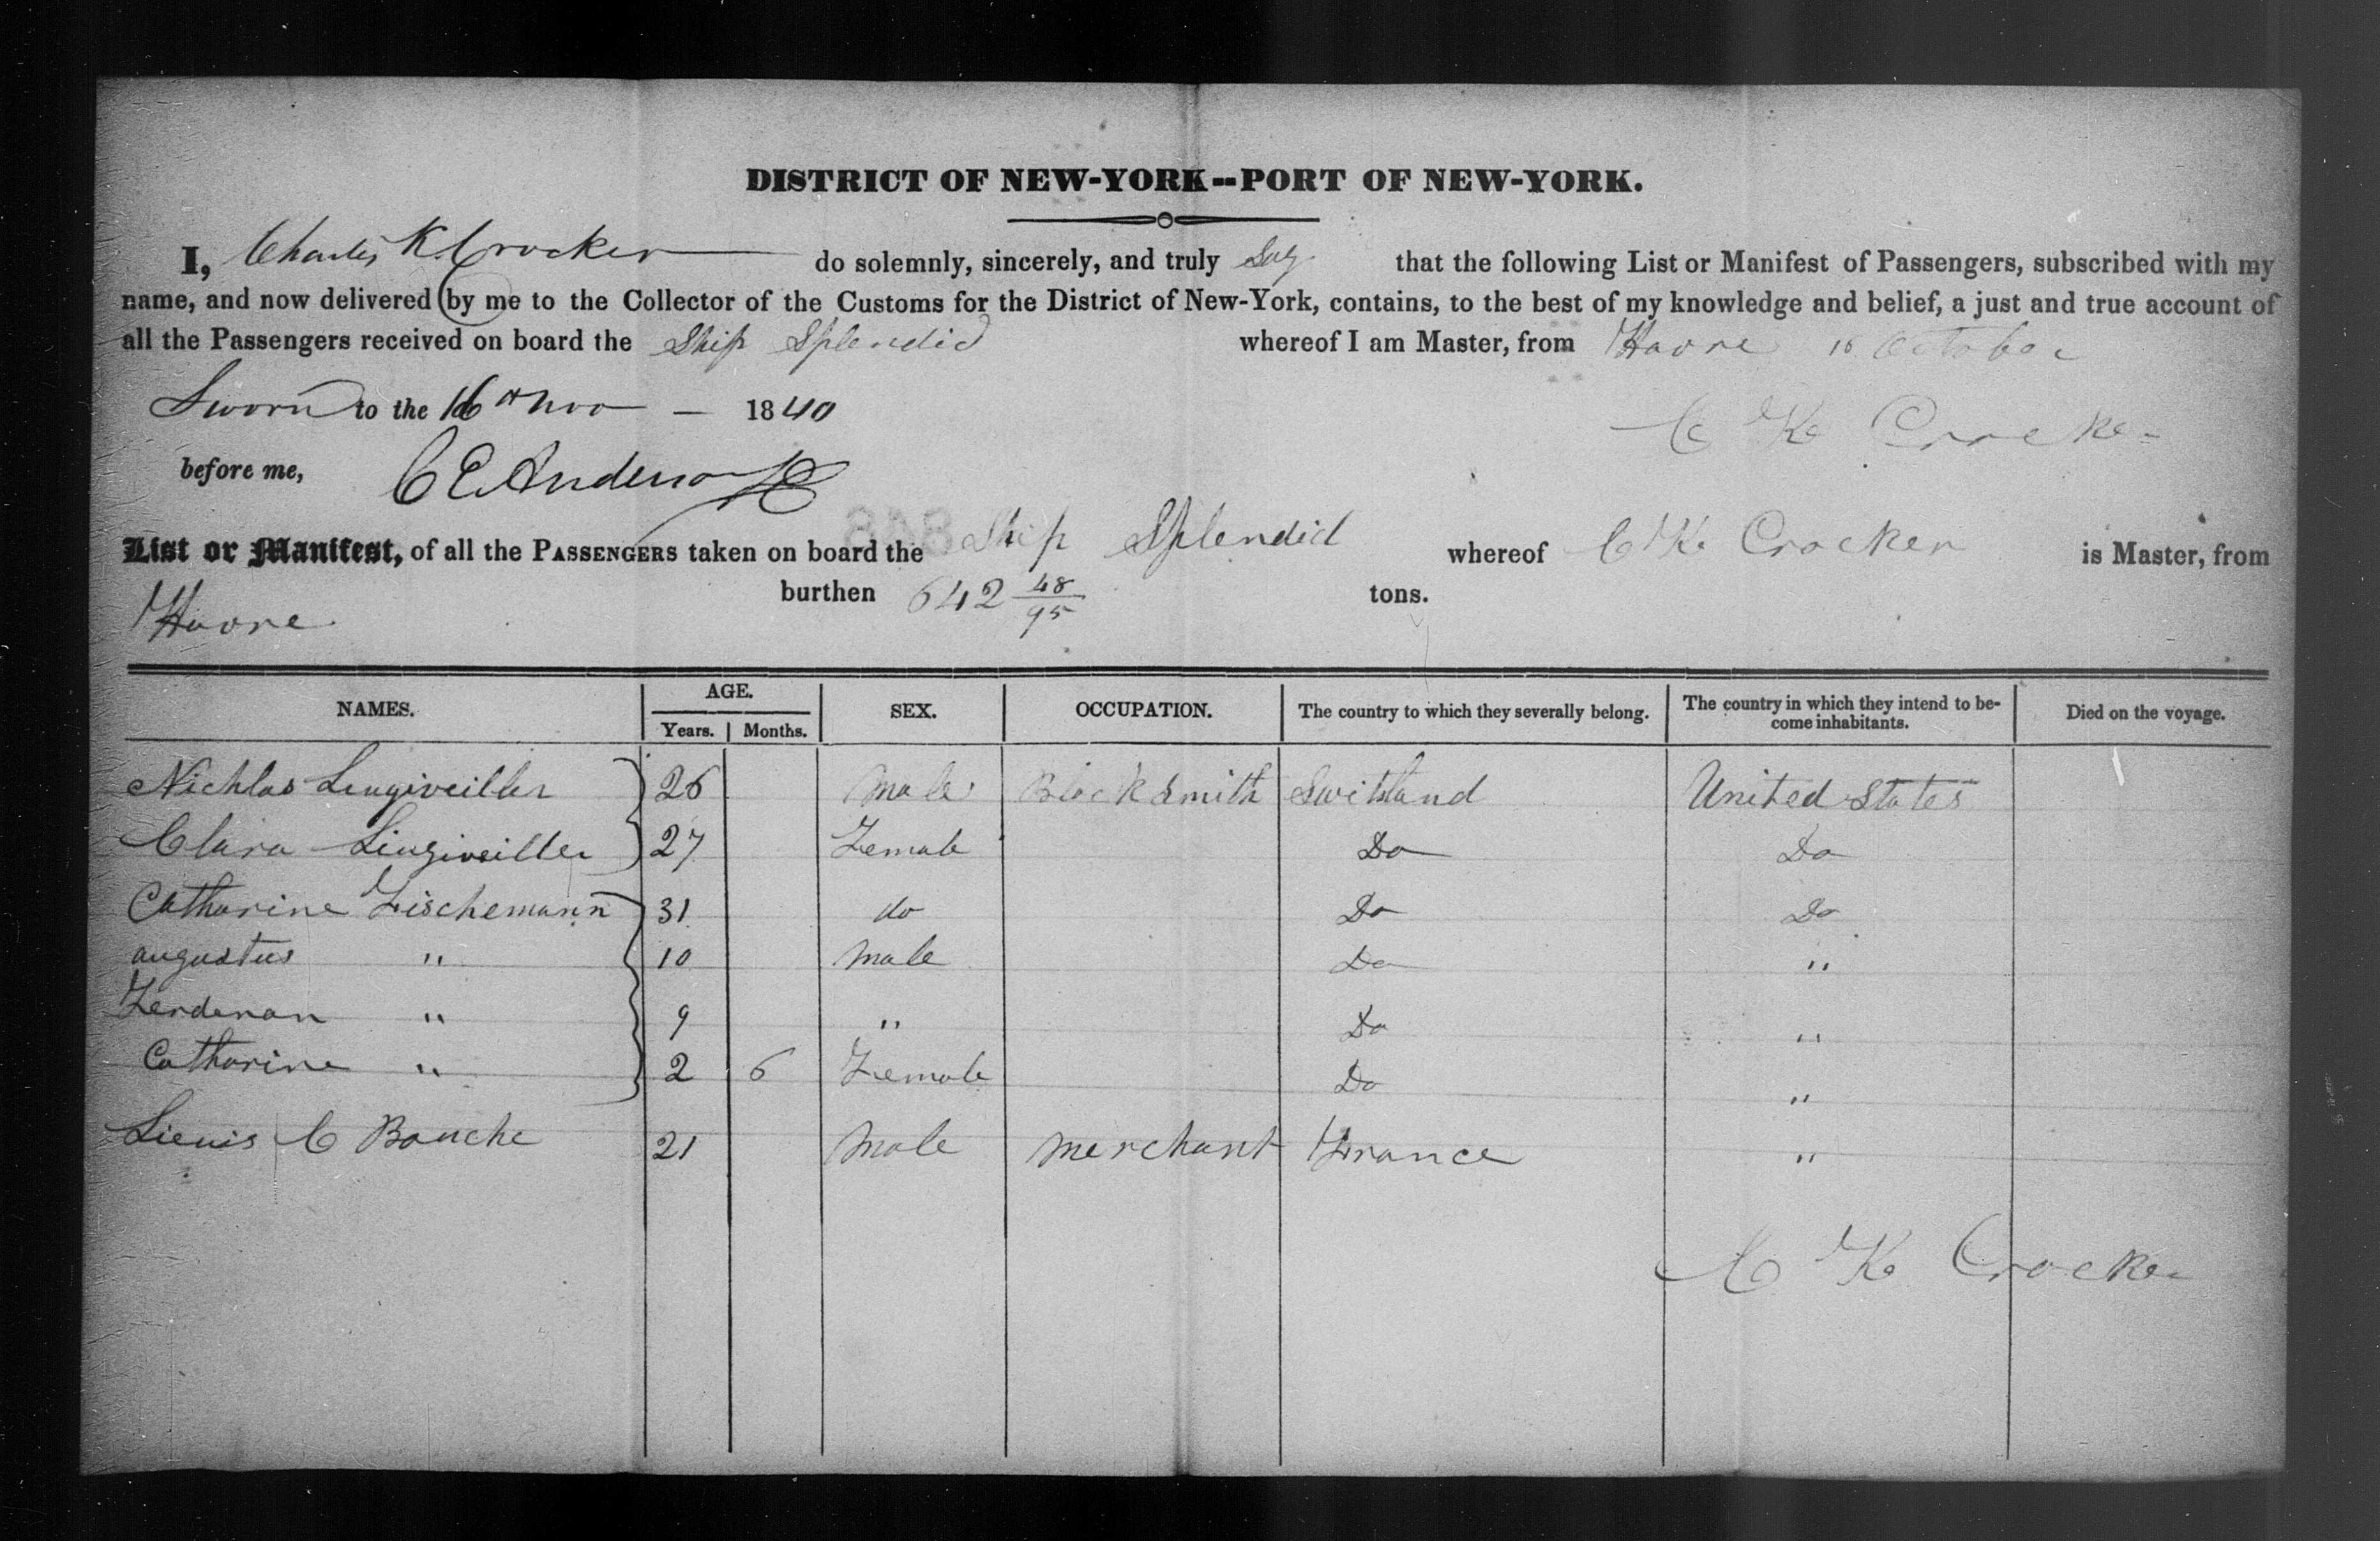 DISTRICT OF NEW-YORK--PORT OF NEW-YORK.
I, Charles K. Crocker do solemnly, sincerely, and truly Say that the following List or Manifest of Passengers, subscribed with my
name, and now delivered by me to the Collector of the Customs for the District of New-York, contains, to the best of my knowledge and belief, a just and true account of
all the Passengers received on board the Ship Splendid whereof I am Master, from Havre October
Sworn to the 16th Nov 1840
C K Crocker
before me, C E Anderson
List or Manifest, of all the PASSENGERS taken on board the Ship Splendid whereof C K. Crocker is Master, from
Havre burthen 642 48/95 tons.
NAMES. AGE. Years. Months. SEX. OCCUPATION. The country to which they severally belong. The country in which they intend to be-come inhabitants. Died on the voyage.
Nichlas 26 Male Black Smith Switsland United States
Clara 27 Female Do Do
Catharine Fischemann 31 do Do Do
augustus " 10 Male Do "
Ferdenan " 9 " Do "
Catharine " 2 6 Female Do "
C Bouche 21 Male Merchant France "
C K Crocker